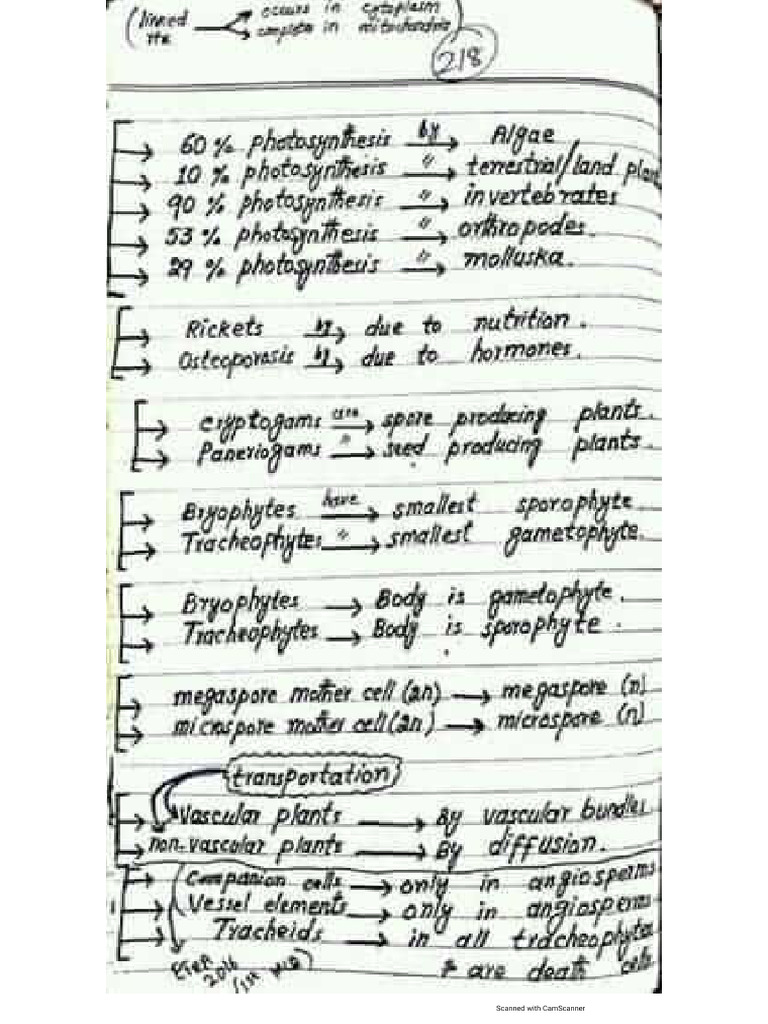 (linked → occurs in cytoplasm
→ complete in mitochondria)
218
60 % photosynthesis by → Algae
10 % photosynthesis " → terrestrial/land plant
90 % photosynthesis " → invertebrates
53 % photosynthesis " → orthropodes.
29 % photosynthesis " → molluska.
Rickets by → due to nutrition.
Osteoporasis by → due to hormones.
Cryptogams are → spore producing plants.
Paneriogams " → seed producing plants.
Bryophytes have → smallest sporophyte
Tracheophytes " → smallest gametophyte.
Bryophytes → Body is gametophyte.
Tracheophytes → Body is sporophyte.
megaspore mother cell (2n) → megaspore (n)
microspore mother cell (2n) → microspore (n)
transportation
Vascular plants → By vascular bundles
non-vascular plants → By diffusion.
Companion cells → only in angiosperms
Vessel elements → only in angiosperms
Tracheids → in all tracheophytes
& are death cells
2016